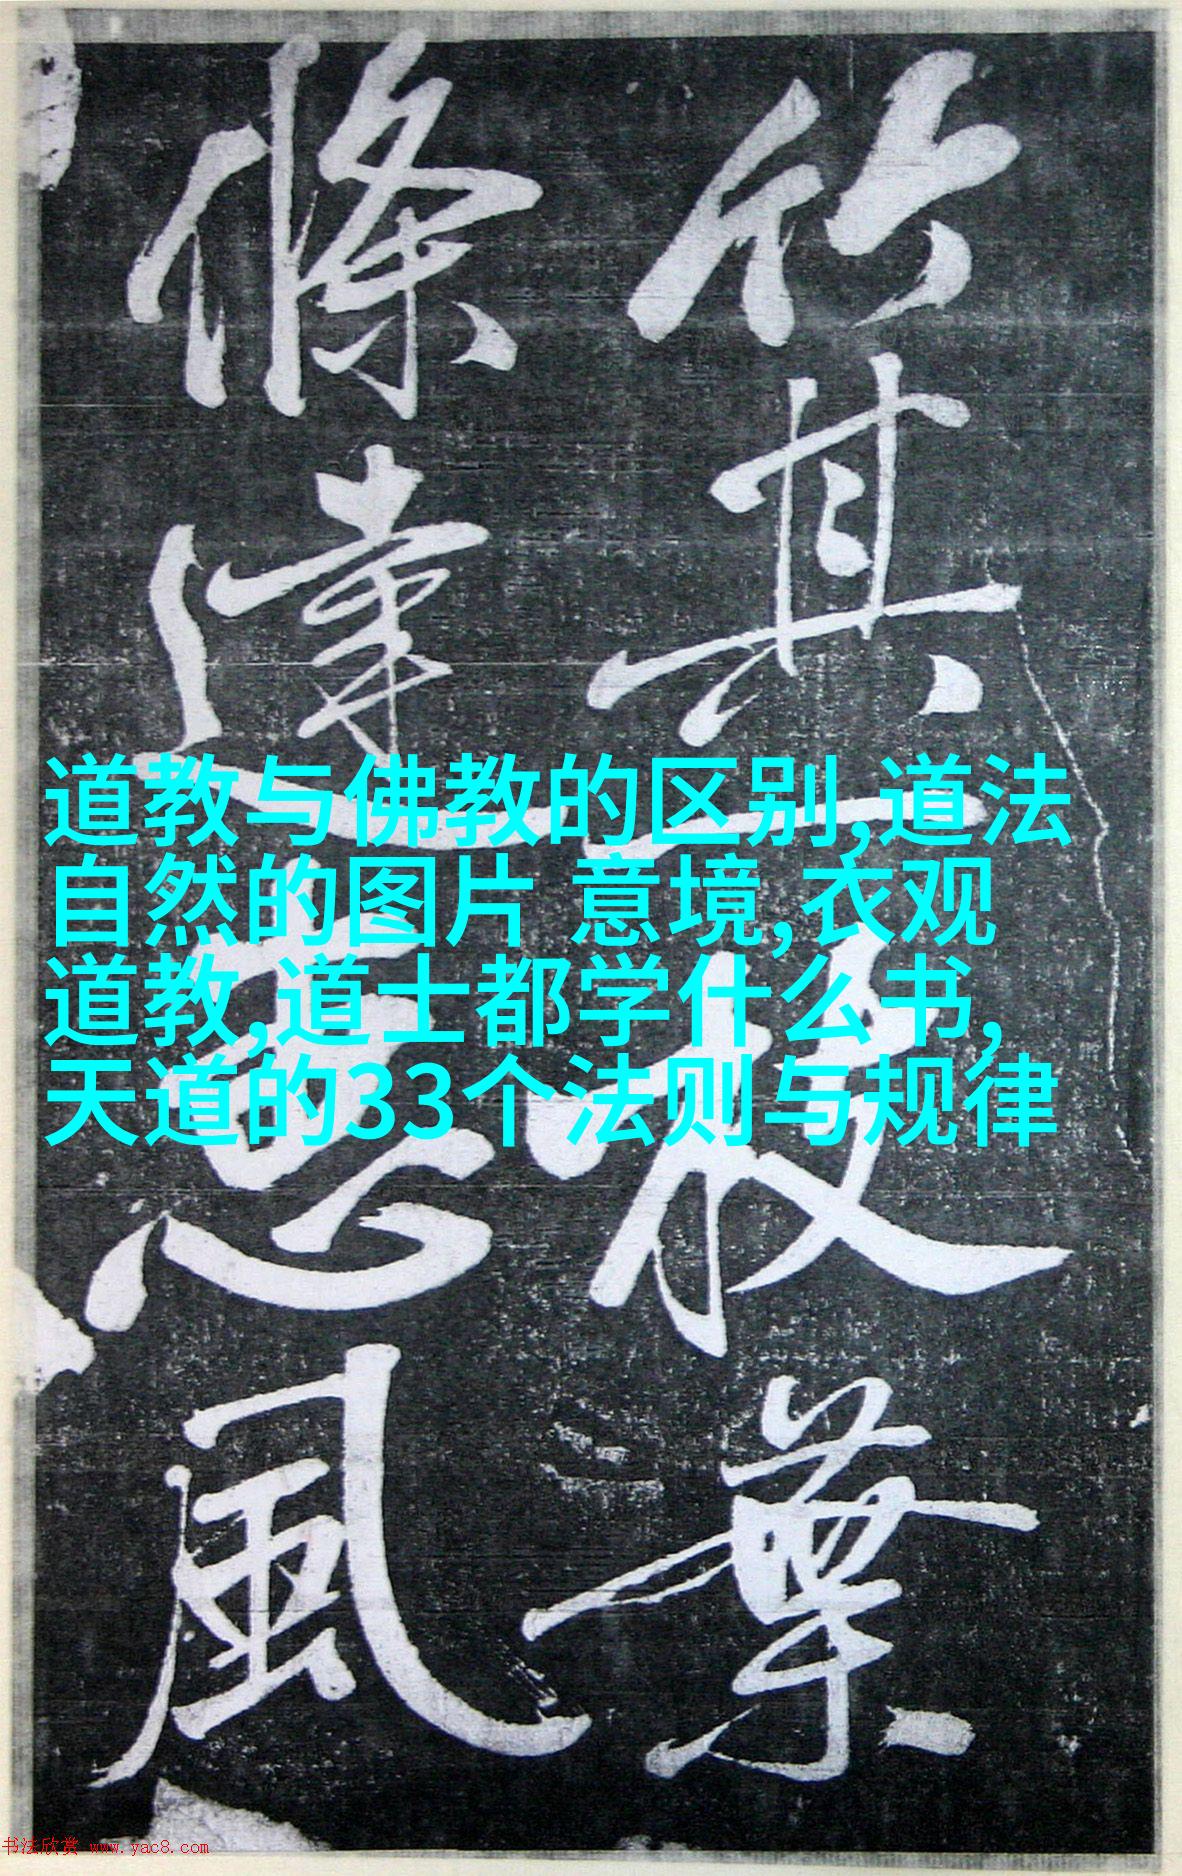 竹其一枝葉
條達惠風
道教与佛教的区别,道法
自然的图片 意境,衣观
道教,道士都学什么书,
天道的33个法则与规律
书法欣赏 www.yac8.com